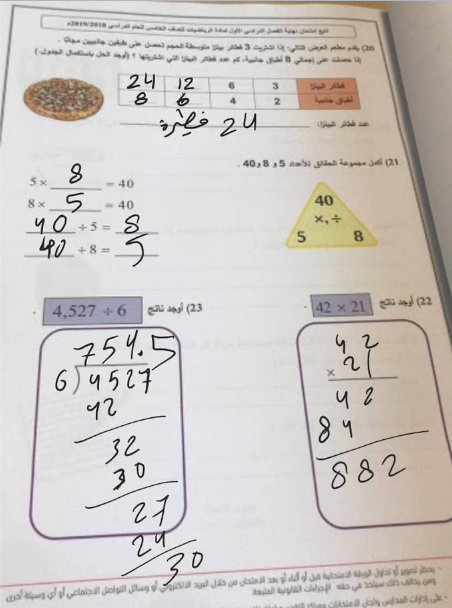 تابع امتحان نهاية الفصل الدراسي الأول لمادة الرياضيات للصف الخامس للعام الدراسي 2019/2018م
20) يقدم مطعم العرض التالي: إذا اشتريت 3 فطائر بيتزا متوسطة الحجم تحصل على طبقين جانبيين مجانًا .
إذا حصلت على إجمالي 8 أطباق جانبية، كم عدد فطائر البيتزا التي اشتريتها ؟ (أوجد الحل باستكمال الجدول.)
فطائر البيتزا 3 6 12 24
أطباق جانبية 2 4 6 8
عدد فطائر البيتزا: 24 فطيرة
21) أكمل مجموعة الحقائق للأعداد 5 و 8 و 40 .
5 × 8 = 40
8 × 5 = 40
40 ÷ 5 = 8
40 ÷ 8 = 5
40
×, ÷
5 8
22) أوجد ناتج 42 × 21 .
42
× 21
42
84
882
23) أوجد ناتج 4,527 ÷ 6 .
754.5
6) 4527
42
32
30
27
24
30
- يحظر تصوير أو تداول الورقة الامتحانية قبل أو أثناء أو بعد الامتحان من خلال البريد الالكتروني أو وسائل التواصل الاجتماعي أو أي وسيلة أخرى
ومن يخالف ذلك سيتخذ في حقه الإجراءات القانونية المتبعة.